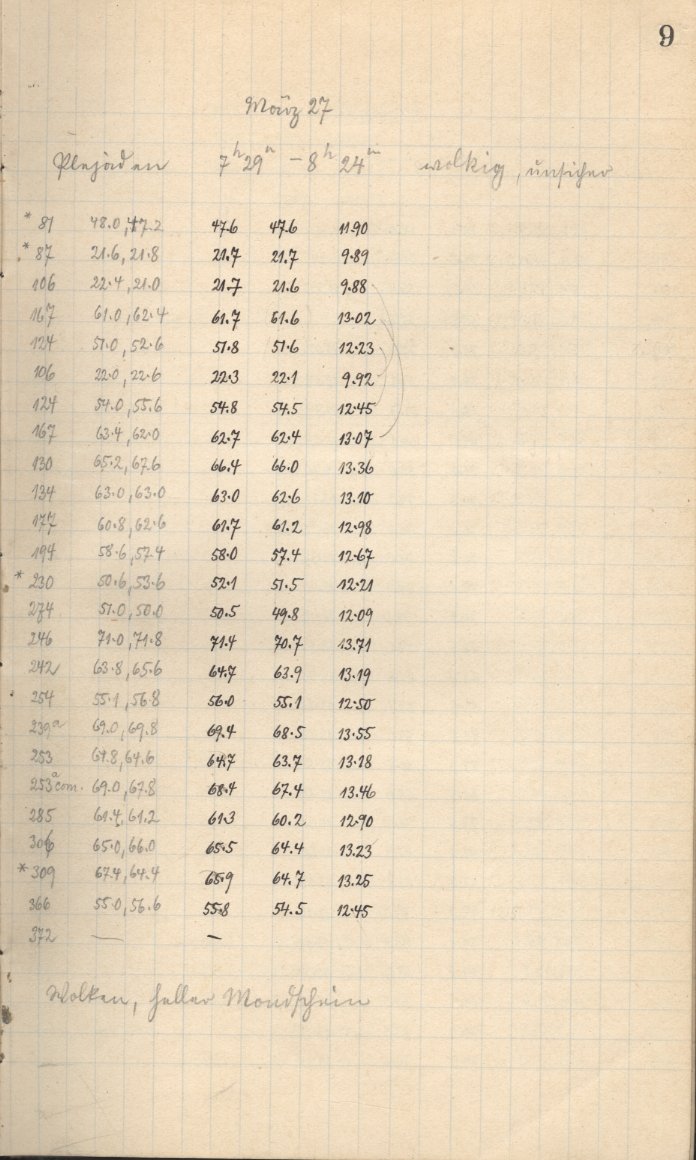 9
März 27
Plejaden 7h 29m – 8h 24m wolkig, unsicher
* 81 48.0, 47.2 47.6 47.6 11.90
* 87 21.6, 21.8 21.7 21.7 9.89
106 22.4, 21.0 21.7 21.6 9.88
167 61.0, 62.4 61.7 61.6 13.02
124 51.0, 52.6 51.8 51.6 12.23
106 22.0, 22.6 22.3 22.1 9.92
124 54.0, 55.6 54.8 54.5 12.45
167 63.4, 62.0 62.7 62.4 13.07
130 65.2, 67.6 66.4 66.0 13.36
134 63.0, 63.0 63.0 62.6 13.10
177 60.8, 62.6 61.7 61.2 12.98
194 58.6, 57.4 58.0 57.4 12.67
* 230 50.6, 53.6 52.1 51.5 12.21
274 51.0, 50.0 50.5 49.8 12.09
246 71.0, 71.8 71.4 70.7 13.71
242 63.8, 65.6 64.7 63.9 13.19
254 55.1, 56.8 56.0 55.1 12.50
239a 69.0, 69.8 69.4 68.5 13.55
253 64.8, 64.6 64.7 63.7 13.18
253a com. 69.0, 67.8 68.4 67.4 13.46
285 61.4, 61.2 61.3 60.2 12.90
306 65.0, 66.0 65.5 64.4 13.23
* 309 67.4, 64.4 65.9 64.7 13.25
366 55.0, 56.6 55.8 54.5 12.45
372 — —
Wolken, heller Mondschein